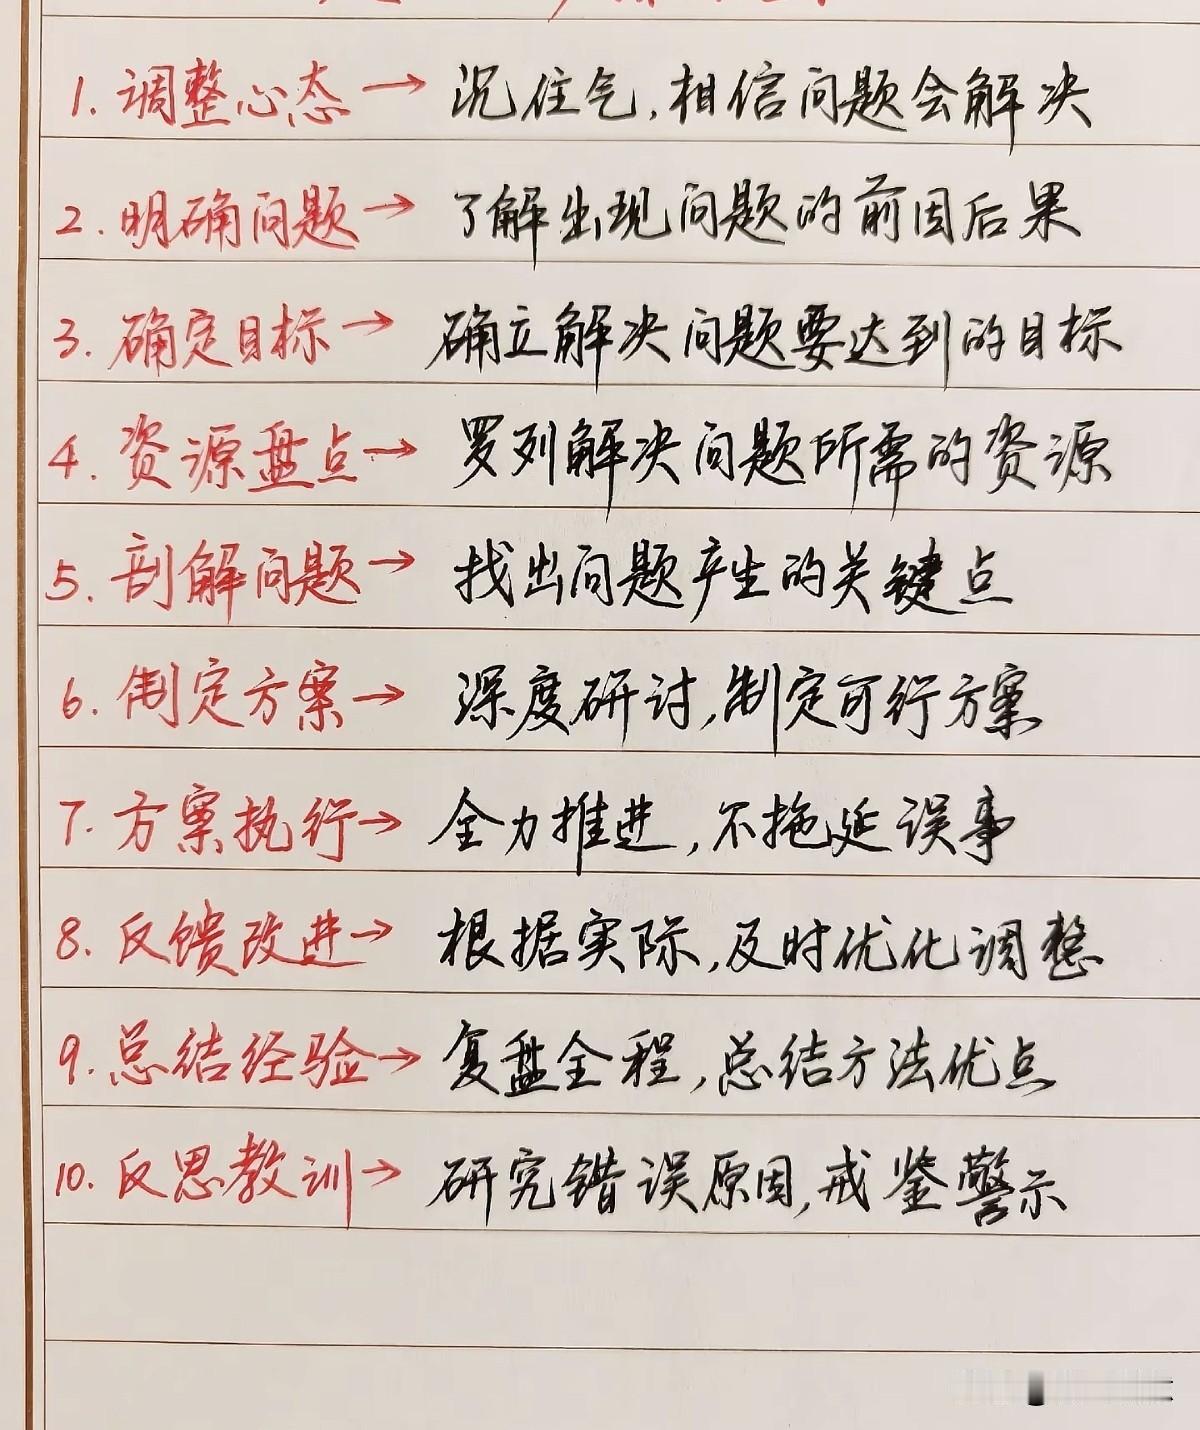 1. 调整心态 → 沉住气,相信问题会解决
2. 明确问题 → 了解出现问题的前因后果
3. 确定目标 → 确立解决问题要达到的目标
4. 资源盘点 → 罗列解决问题所需的资源
5. 剖解问题 → 找出问题产生的关键点
6. 制定方案 → 深度研讨,制定可行方案
7. 方案执行 → 全力推进,不拖延误事
8. 反馈改进 → 根据实际,及时优化调整
9. 总结经验 → 复盘全程,总结方法优点
10. 反思教训 → 研究错误原因,戒鉴警示